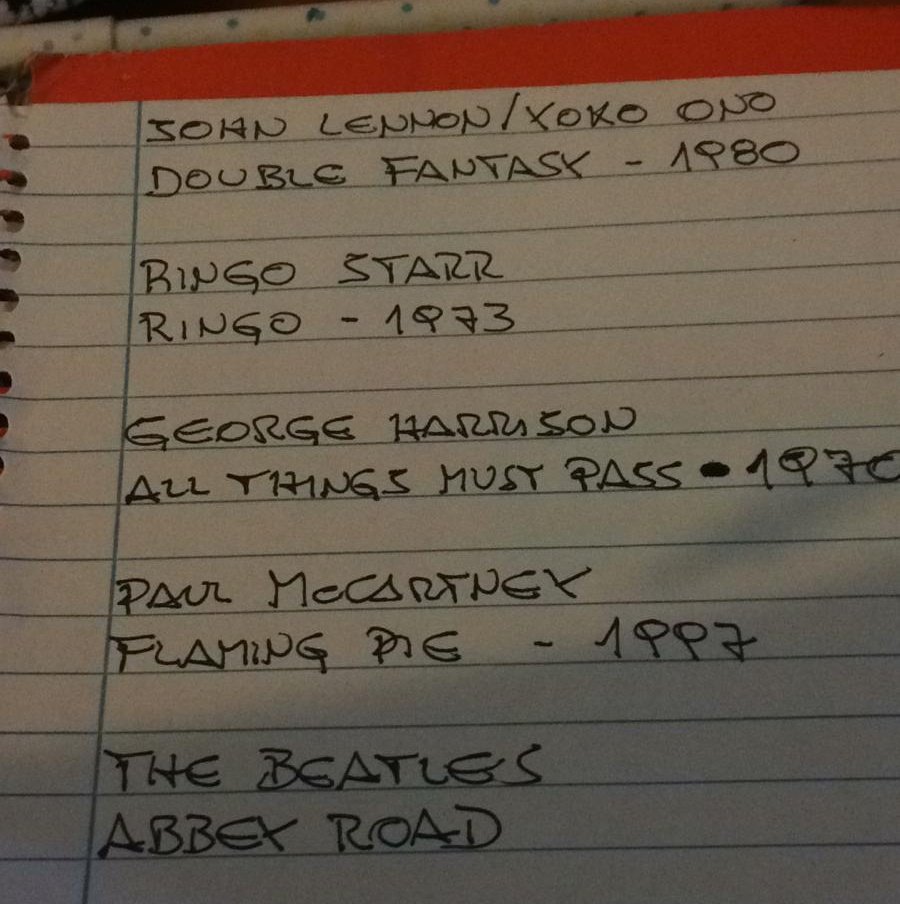 JOHN LENNON/YOKO ONO
DOUBLE FANTASY - 1980
RINGO STARR
RINGO - 1973
GEORGE HARRISON
ALL THINGS MUST PASS - 1970
PAUL McCARTNEY
FLAMING PIE - 1997
THE BEATLES
ABBEY ROAD